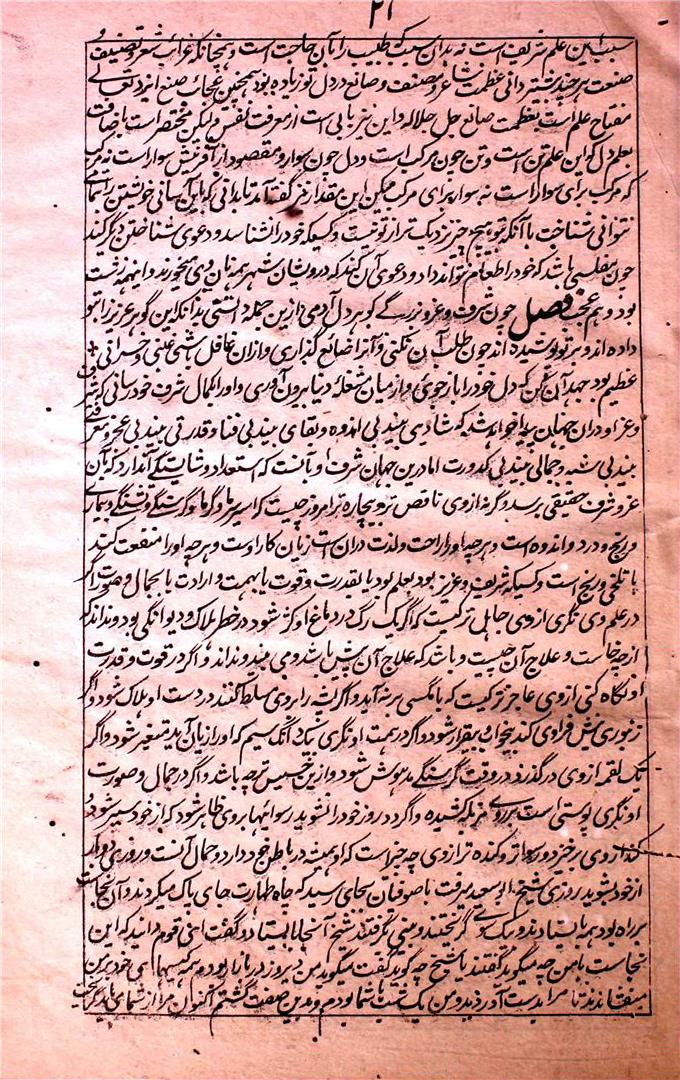 ۲۱
سبب این علم شریف است نه بدان سبب که طبیب را بآن حاجت است و همچنانکه غرائب شعر و تصنیف و
صنعت هر چند بیشتر دانی عظمت شاعر و مصنف و صانع در دل تو زیاده بود همچنین عجائب صنع ایزد تعالی
مفتاح علم است بعظمت صانع جل جلاله و این نیز بابی است از معرفت نفس ولیکن مختصر است باضافت
بعلم دل که این علم تن است و تن چون مرکب است و دل چون سوار و مقصود از آفرینش سوار است نه مرکب
که مرکب برای سوار است نه سوار برای مرکب لیکن این مقدار نیز گفته آمد تا بدانی که باین آسانی خویشتن را تمامی
نتوانی شناخت با آنکه بتو هیچ چیز نزدیک تر از تو نیست و کسیکه خود را نشناسد و دعوی شناختن دیگر کند
چون مفلسی باشد که خود را طعام نتواند داد و دعوی آن کند که درویشان شهر همه نان وی میخورند و اینهمه زشت
بود و هم عجب فصل چون شرف و عز و بزرگی گوهر دل آدمی ازین جمله دانستی بدانکه این گوهر عزیز را بتو
داده اند و بر تو پوشیده اند چون طلب آن نکنی و آنرا ضائع گذاری و ازان غافل باشی غبنی و خسرانی
عظیم بود جهد آن کن که دل خود را بازجوئی و از میان شغله دنیا بیرون آوری و او را بکمال شرف خود رسانی که شرف
و عز او دران جهان پیدا خواهد شد که شادی بیند بی اندوه و بقای بیند بی فنا و قدرتی بیند بی عجز و معرفتی
بیند بی شبهه و جمالی بیند بی کدورت اما درین جهان شرف او بآنست که استعداد و شایستگی آن دارد که بآن
عز و شرف حقیقی برسد و گرنه از وی ناقص تر و بیچاره تر امروز چیست که اسیر سرما و گرما و گرسنگی و تشنگی و بیماری
و رنج و درد و اندوه است و هر چه او را راحت و لذت دران است زیان کار اوست و هر چه او را منفعت کند
با تلخی و رنج است و کسیکه شریف و عزیز بود بعلم بود یا بقدرت و قوت یا بهمت و ارادت یا بجمال و صورت اگر
در علم وی نگری از وی جاهل تر کیست که اگر یک رگ در دماغ او کژ شود در خطر هلاک و دیوانگی بود و نداند که
از چه خاست و علاج آن چیست و باشد که علاج آن پیش او باشد و می بیند و نداند و اگر در قوت و قدرت
او نگاه کنی از وی عاجز تر کیست که با مگسی بر نیاید و اگر پشه را بر وی مسلط کنند در دست او هلاک شود و اگر
زنبوری نیش فرا وی کند بیخواب و بیقرار شود و اگر در همت او نگری بیک دانگ سیم که او را زیان آید متغیر شود و اگر
یک لقمه از وی در گذرد در وقت گرسنگی مدهوش شود و ازین خسیس تر چه باشد و اگر در جمال و صورت
او نگری پوستی است بر روی مزبله کشیده و اگر دو روز خود را نشوید رسوائیها بر وی ظاهر شود که از خود سیر شود و
گند از وی برخیزد و رسوا تر و گنده تر از وی چه چیز است که او همیشه در باطن خود دارد و حمال آنست و روزی دو بار
از خود بشوید روزی شیخ ابو سعید میرفت با صوفیان بجای رسید که چاه طهارت جای پاک میکردند و آن نجاست
بر راه بود همه بایستادند و بیک سوی گریختند و بینی بگرفتند شیخ آنجا بایستاد و گفت ای قوم دانید که این
نجاست با من چه میگوید گفتند یا شیخ چه گوید گفت میگوید من دیروز در بازار بودم و همه کیسها ای خود بر من
میفشاندند تا مرا بدست آوردند و من یک شب با شما بودم و بدین صفت گشتم اکنون مرا از شما می باید گریخت